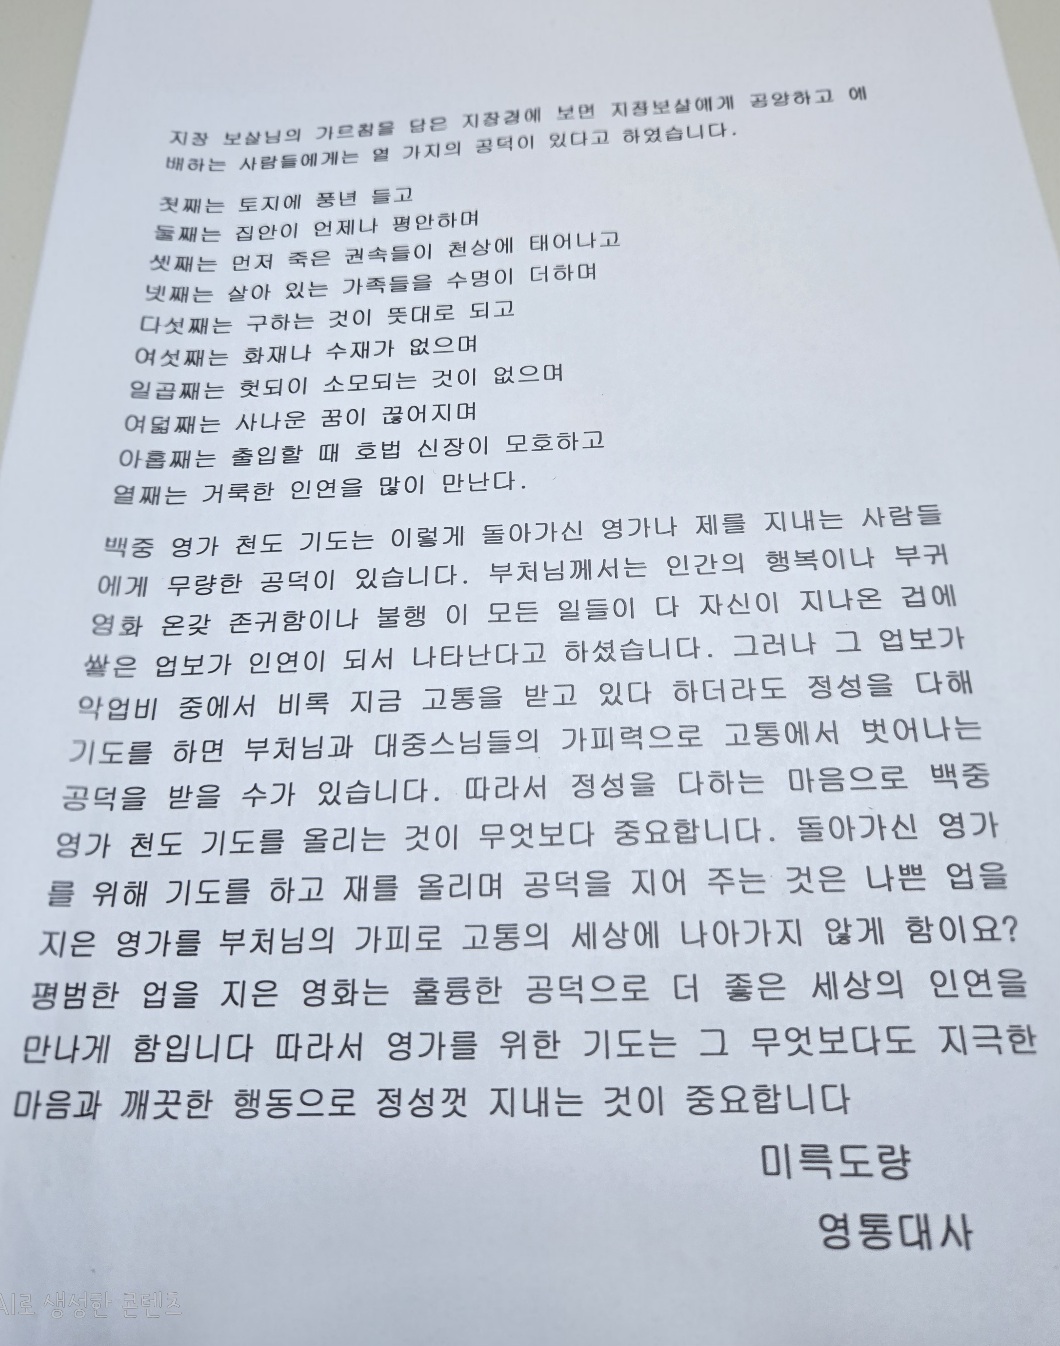 지장 보살님의 가르침을 담은 지장경에 보면 지장보살에게 공양하고 예
배하는 사람들에게는 열 가지의 공덕이 있다고 하였습니다.
첫째는 토지에 풍년 들고
둘째는 집안이 언제나 평안하며
셋째는 먼저 죽은 권속들이 천상에 태어나고
넷째는 살아 있는 가족들을 수명이 더하며
다섯째는 구하는 것이 뜻대로 되고
여섯째는 화재나 수재가 없으며
일곱째는 헛되이 소모되는 것이 없으며
여덟째는 사나운 꿈이 끊어지며
아홉째는 출입할 때 호법 신장이 모호하고
열째는 거룩한 인연을 많이 만난다.
백중 영가 천도 기도는 이렇게 돌아가신 영가나 제를 지내는 사람들
에게 무량한 공덕이 있습니다. 부처님께서는 인간의 행복이나 부귀
영화 온갖 존귀함이나 불행 이 모든 일들이 다 자신이 지나온 겁에
쌓은 업보가 인연이 되서 나타난다고 하셨습니다. 그러나 그 업보가
악업비 중에서 비록 지금 고통을 받고 있다 하더라도 정성을 다해
기도를 하면 부처님과 대중스님들의 가피력으로 고통에서 벗어나는
공덕을 받을 수가 있습니다. 따라서 정성을 다하는 마음으로 백중
영가 천도 기도를 올리는 것이 무엇보다 중요합니다. 돌아가신 영가
를 위해 기도를 하고 재를 올리며 공덕을 지어 주는 것은 나쁜 업을
지은 영가를 부처님의 가피로 고통의 세상에 나아가지 않게 함이요?
평범한 업을 지은 영화는 훌륭한 공덕으로 더 좋은 세상의 인연을
만나게 함입니다 따라서 영가를 위한 기도는 그 무엇보다도 지극한
마음과 깨끗한 행동으로 정성껏 지내는 것이 중요합니다
미륵도량
영통대사
AI로 생성한 콘텐츠